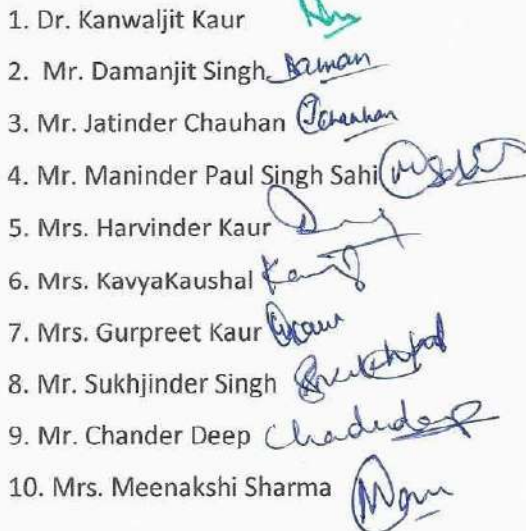 1. Dr. Kanwaljit Kaur
2. Mr. Damanjit Singh Daman
3. Mr. Jatinder Chauhan JChauhan
4. Mr. Maninder Paul Singh Sahi
5. Mrs. Harvinder Kaur
6. Mrs. KavyaKaushal
7. Mrs. Gurpreet Kaur
8. Mr. Sukhjinder Singh
9. Mr. Chander Deep Chadudeep
10. Mrs. Meenakshi Sharma